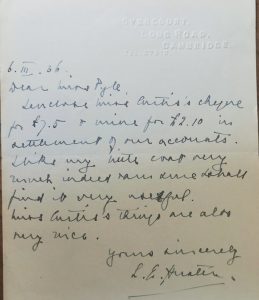 OVERCOURT,
LONG ROAD,
CAMBRIDGE.
6. III. 36.
Dear Miss Pyle
I enclose Miss Curtis's cheque
for £7.5 & mine for £2.10 in
settlement of our accounts.
I like my little coat very
much indeed and I am sure I shall
find it very useful.
Miss Curtis's things are also
very nice.
Yours sincerely
L. E. Hunter.